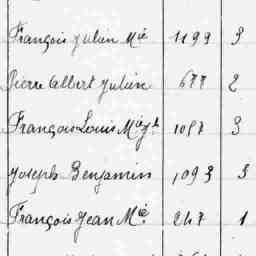 François Julien Mie 1199 3
Pierre Albert Julien 677 2
François Louis Mie Jh 1087 3
Joseph Benjamin 1093 3
François Jean Mie 247 1